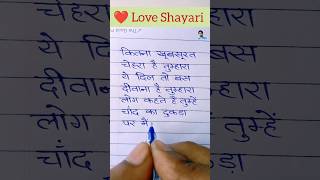 ❤️ Love Shayari
कितना खूबसूरत
चेहरा है तुम्हारा
ये दिल तो बस
दीवाना है तुम्हारा
लोग कहते है तुम्हें
चाँद का टुकड़ा
पर मैं